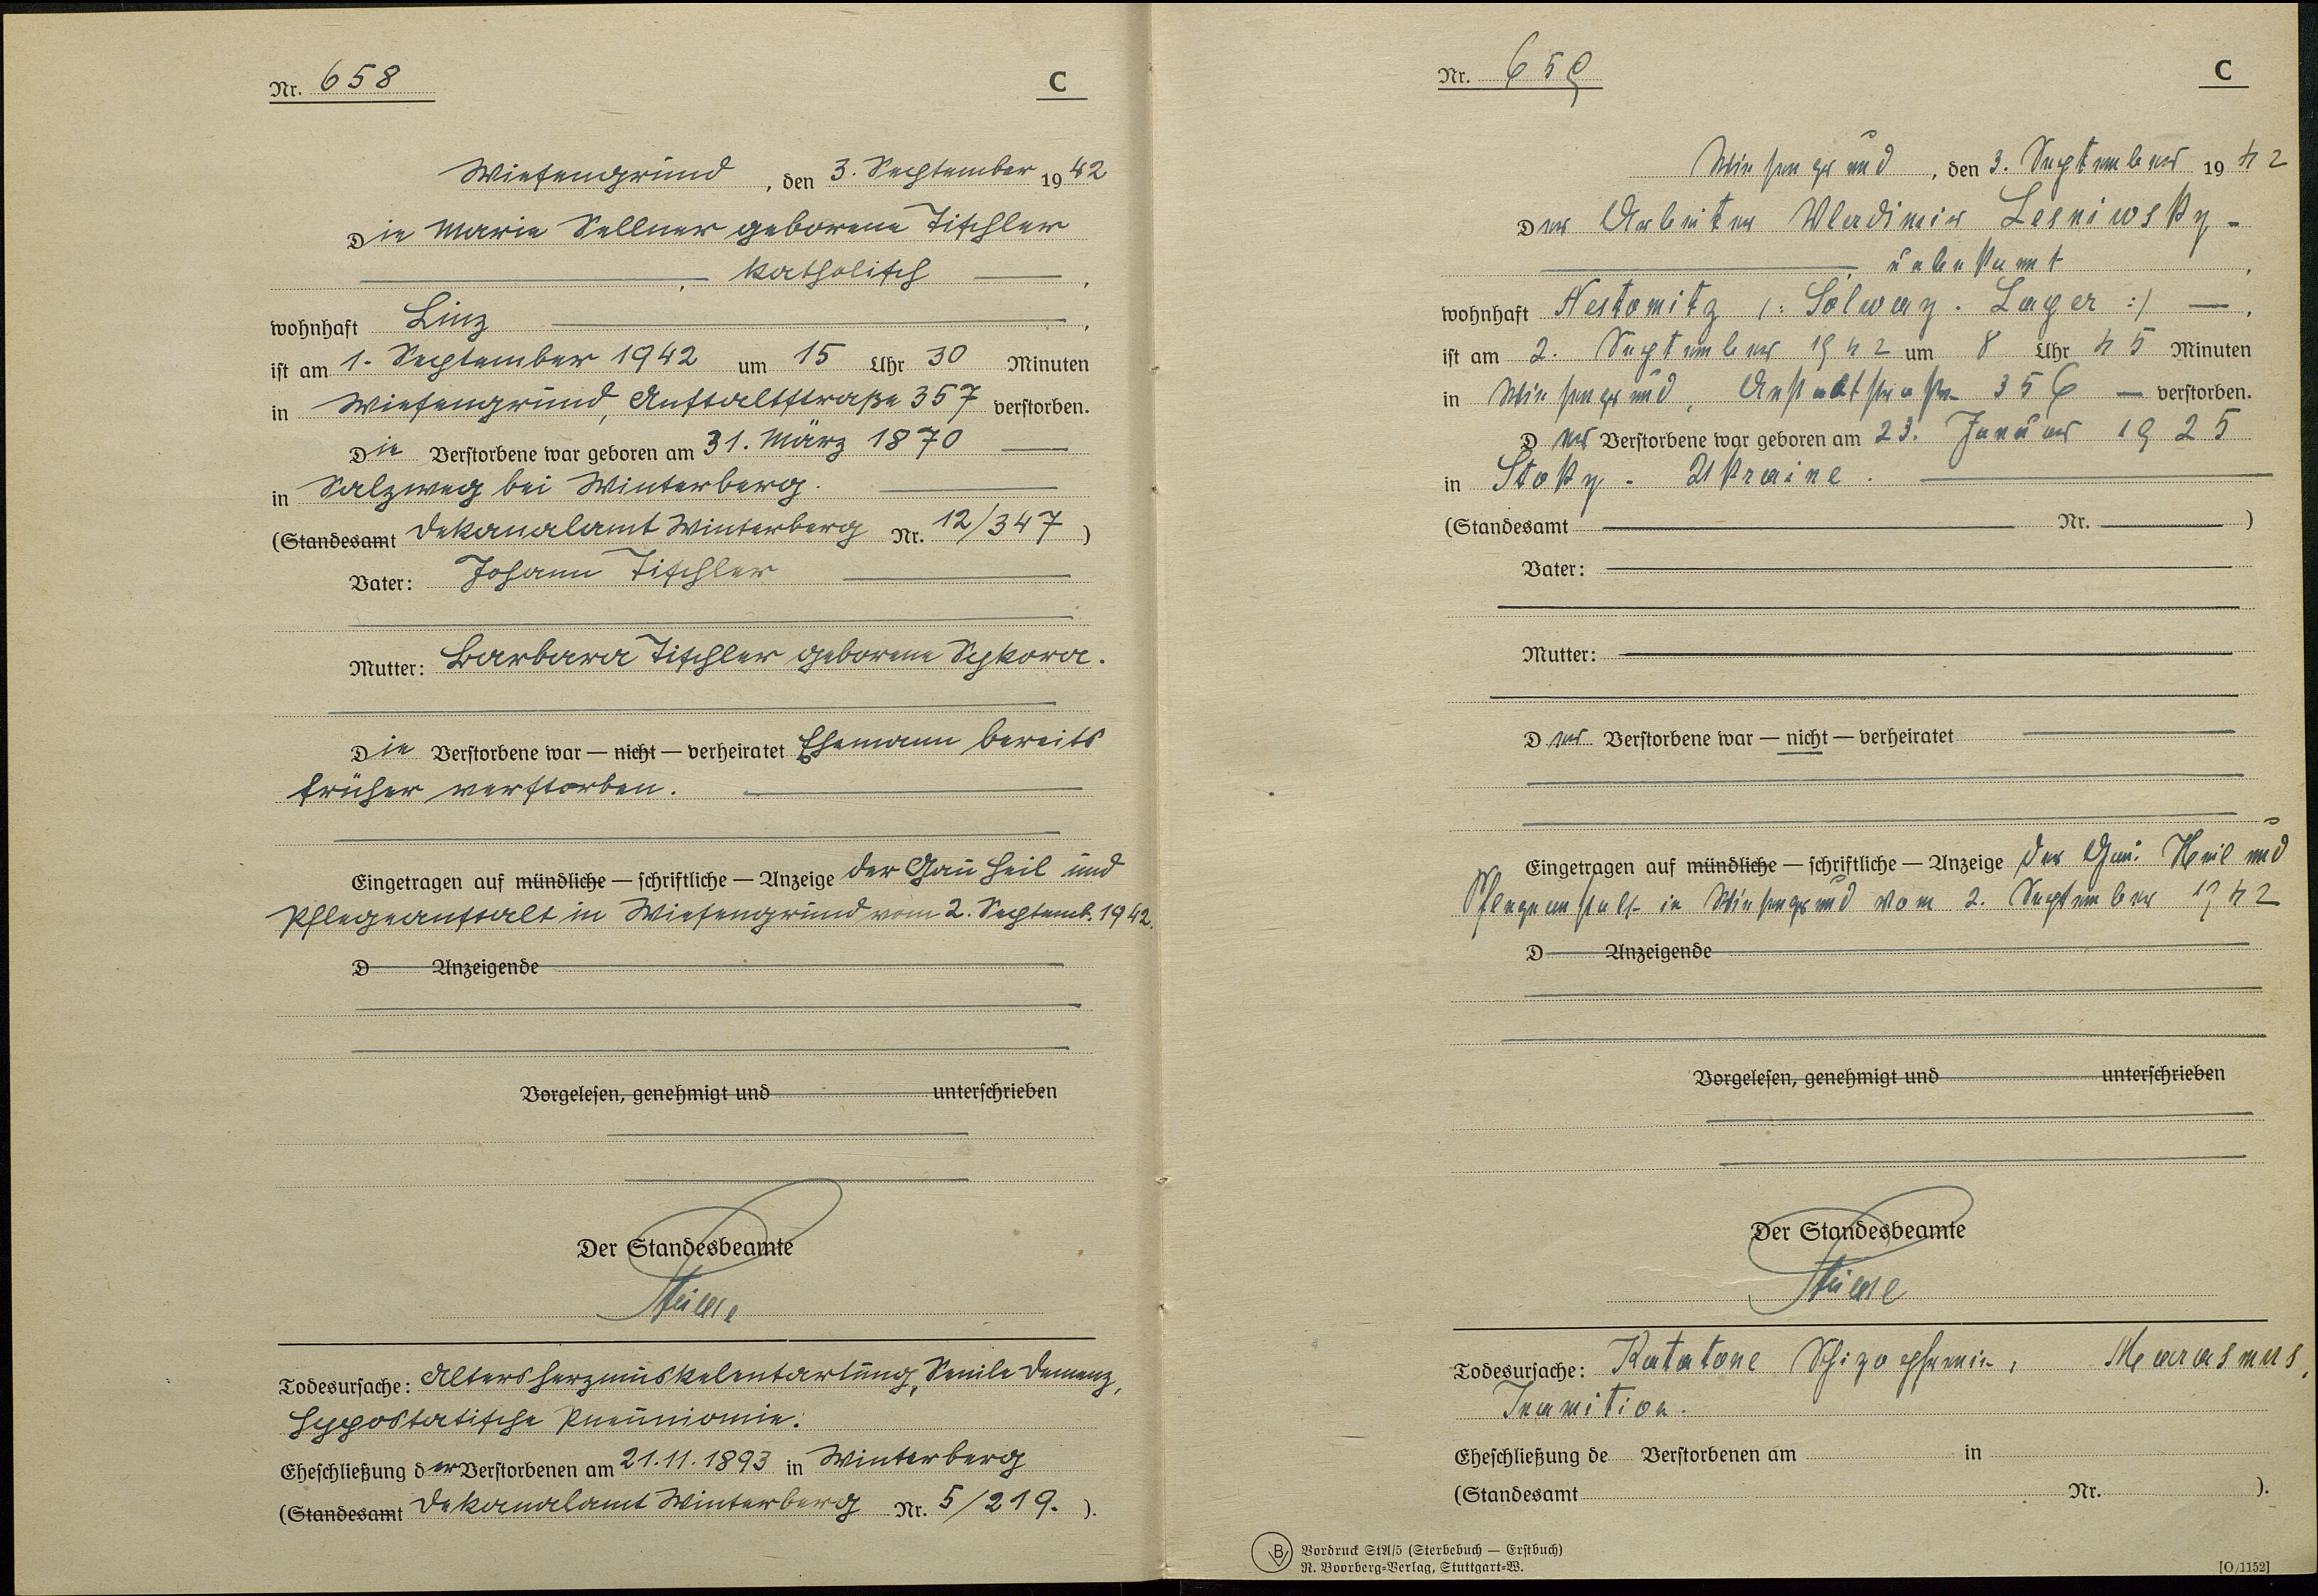 Nr. 658
C
Wiesengrund, den 3. September 1942
Die Marie Sellner geborene Tischler
, katholisch ,
wohnhaft Linz ,
ist am 1. September 1942 um 15 Uhr 30 Minuten
in Wiesengrund, Anstaltstraße 357 verstorben.
Die Verstorbene war geboren am 31. März 1870
in Salzweg bei Winterberg.
(Standesamt Dekanalamt Winterberg Nr. 12/347)
Vater: Johann Tischler
Mutter: Barbara Tischler geborene Sykora.
Die Verstorbene war — nicht — verheiratet Ehemann bereits
früher verstorben.
Eingetragen auf mündliche — schriftliche — Anzeige der Gau Heil und
Pflegeanstalt in Wiesengrund vom 2. Septemb. 1942.
D Anzeigende
Vorgelesen, genehmigt und unterschrieben
Der Standesbeamte
Todesursache: Altersherzmuskelentartung, Senile Demenz,
hypostatische Pneumiomie.
Eheschließung der Verstorbenen am 21.11.1893 in Winterberg
(Standesamt Dekanalamt Winterberg Nr. 5/219. ).
Nr. 659
C
Wiesengrund, den 3. September 1942
Der Arbeiter Wladimir Lesniwsky -
, unbekannt ,
wohnhaft Nestomitz /: Solway - Lager :/ ,
ist am 2. September 1942 um 8 Uhr 45 Minuten
in Wiesengrund, Anstaltstraße 356 — verstorben.
Der Verstorbene war geboren am 23. Januar 1925
in Stoky - Ukraine.
(Standesamt Nr. )
Vater:
Mutter:
Der Verstorbene war — nicht — verheiratet
Eingetragen auf mündliche — schriftliche — Anzeige der Gau. Heil und
Pflegeanstalt in Wiesengrund vom 2. September 1942
D Anzeigende
Vorgelesen, genehmigt und unterschrieben
Der Standesbeamte
Todesursache: Katatone Schizophrenie, Marasmus,
Inanition.
Eheschließung de Verstorbenen am in
(Standesamt Nr. ).
B Vordruck StA/5 (Sterbebuch — Erstbuch)
R. Boorberg-Verlag, Stuttgart-W.
[O/1152]